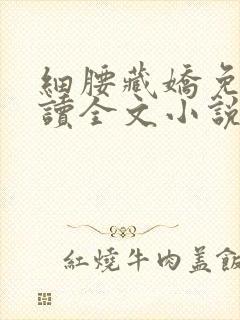 細腰藏嬌免
讀全文小説
紅燒牛肉蓋飯